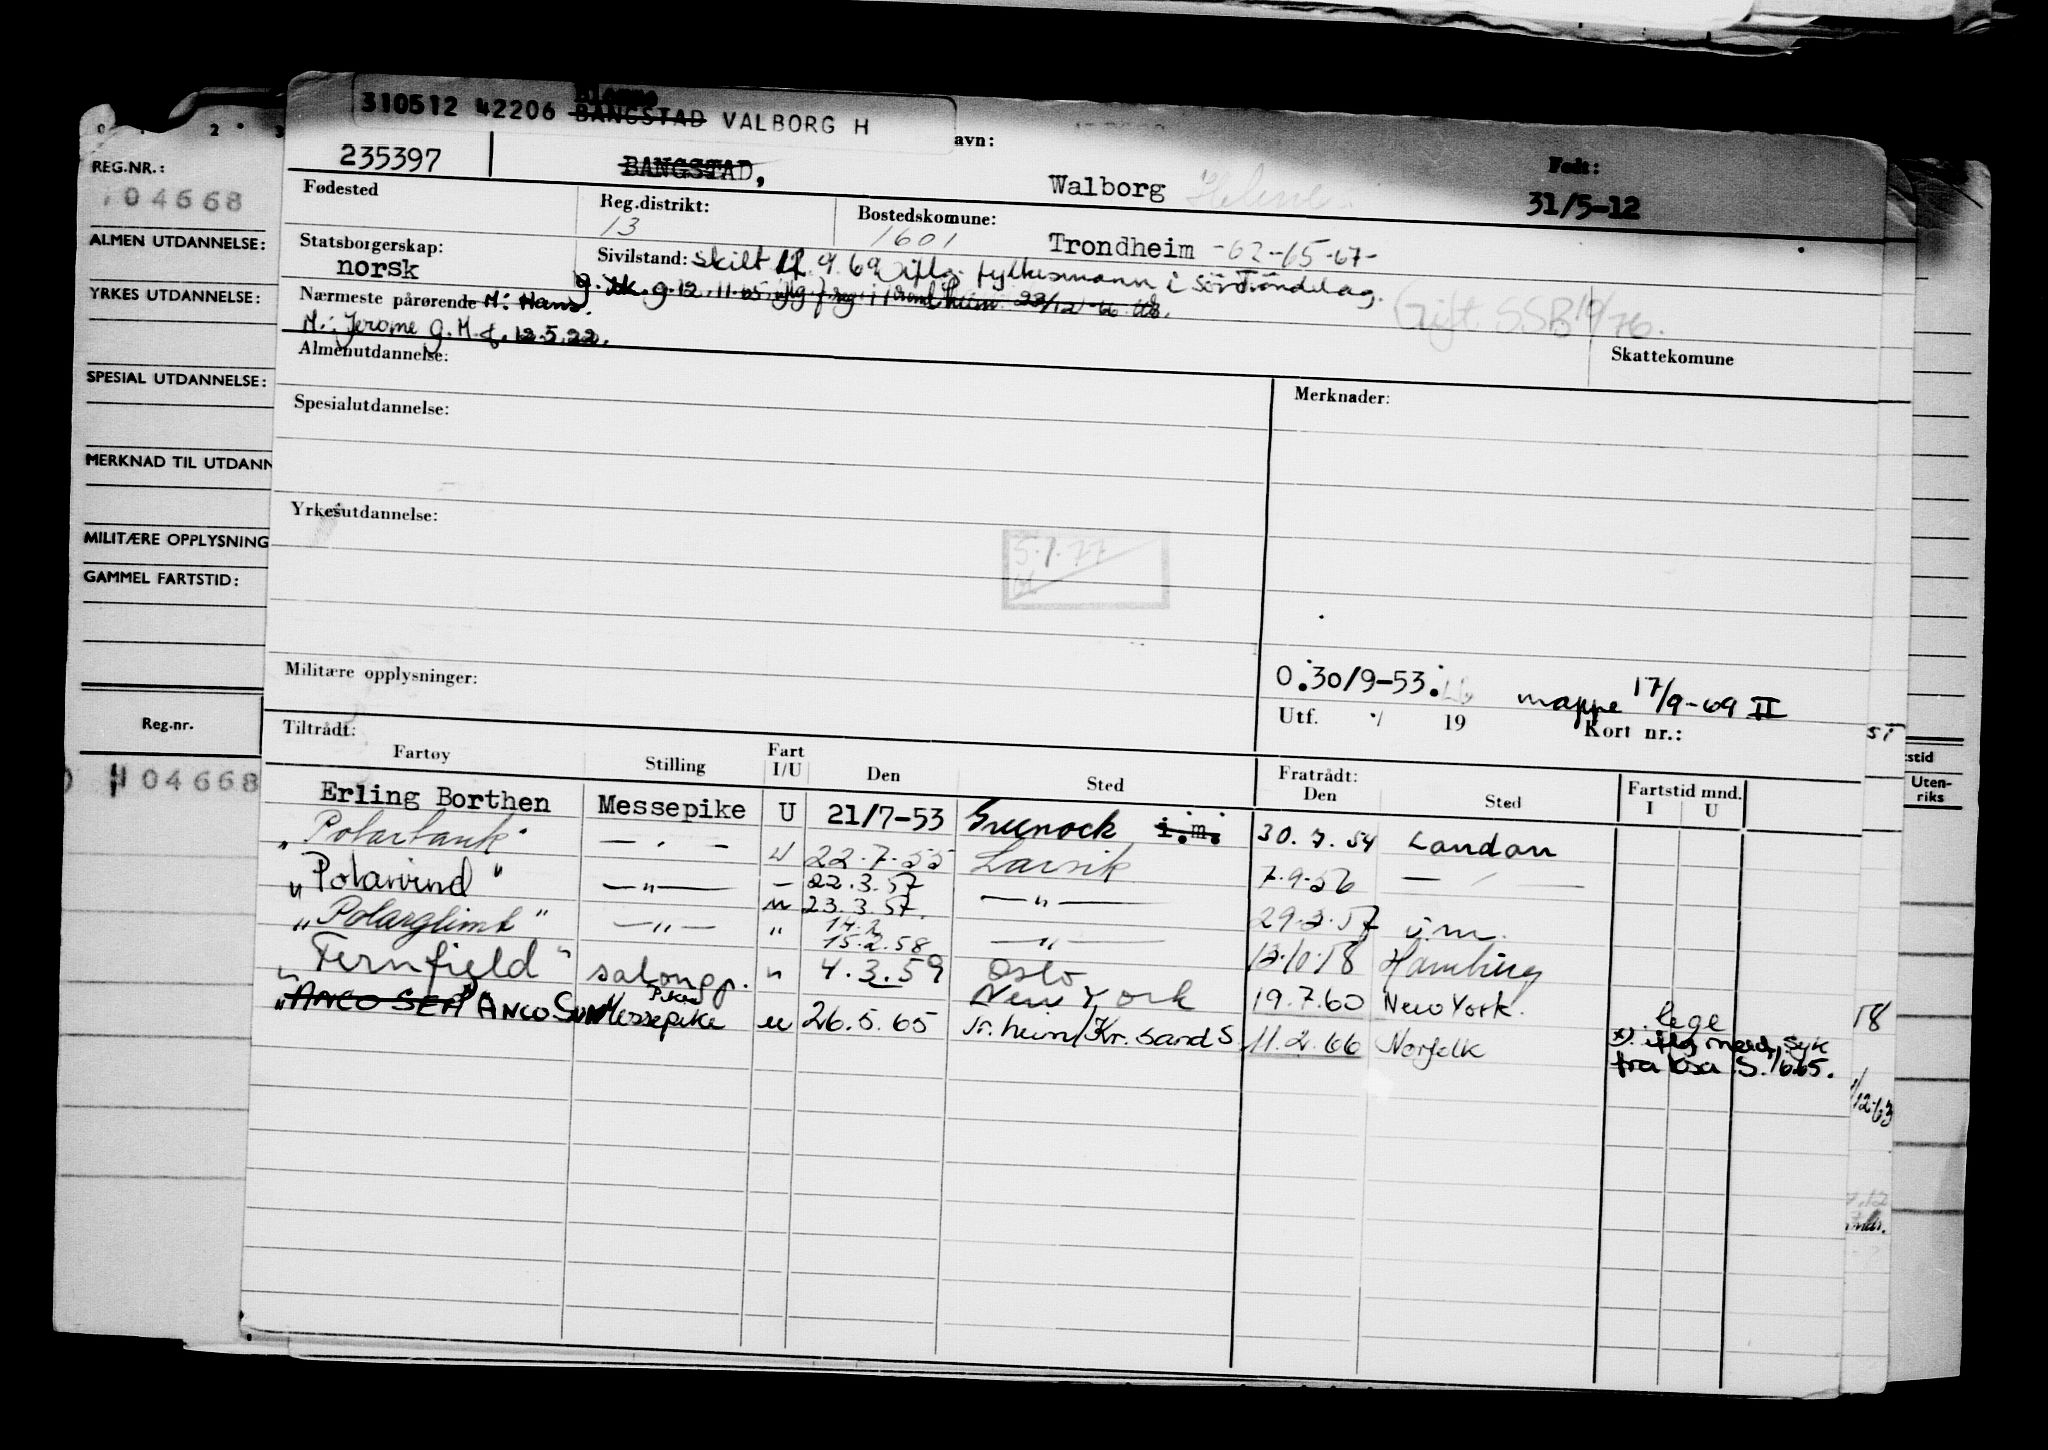 310512 42206 BANGSTAD VALBORG H
avn:
Født:
235397 BANGSTAD, Walborg Helene 31/5-12
Fødested
Reg.distrikt:
13
Bostedskomune:
1601 Trondheim -62-65-67-
Statsborgerskap:
norsk
Sivilstand: Skilt 17.9.69 iflg. fylkesmann i SörTröndelag.
Gift SSB 10/76.
Nærmeste pårørende M: Hans.
M: Jerome G.M. f. 12.5.22.
Skattekomune
Almenutdannelse:
Merknader:
Spesialutdannelse:
Yrkesutdannelse:
5.1.77
Militære opplysninger:
0.30/9-53.
mappe 17/9-69 II
Utf. / 19
Kort nr.:
Tiltrådt:
Fartøy Stilling Fart I/U Den Sted Fratrådt: Den Sted Fartstid mnd. I U
Erling Borthen Messepike U 21/7-53 Greenock i.m. 30.7.54 London
"Polartank" — " — U 22.7.55 Larvik 7.9.56 — " —
"Polarvind" — " — 22.3.57 23.3.57. — " — 29.3.57 i.m.
"Polarglimt" — " — " 14.2 15.2.58 — " — 13.10.58 Hamburg
"Fernfield" salongp. " 4.3.59 Oslo New York 19.7.60 New York.
"ANCO SEA" ANCO SUN Messepike u 26.5.65 Tr.heim/Kr.sand S. 11.2.66 Norfolk
lege
x) iflg meld, syk
fra Krsa S. 1/6.65.
REG.NR.:
104668
ALMEN UTDANNELSE:
YRKES UTDANNELSE:
SPESIAL UTDANNELSE:
MERKNAD TIL UTDANN
MILITÆRE OPPLYSNING
GAMMEL FARTSTID:
Reg.nr.
104668
stid
Uten-
riks
51
58
/12-63
7.12